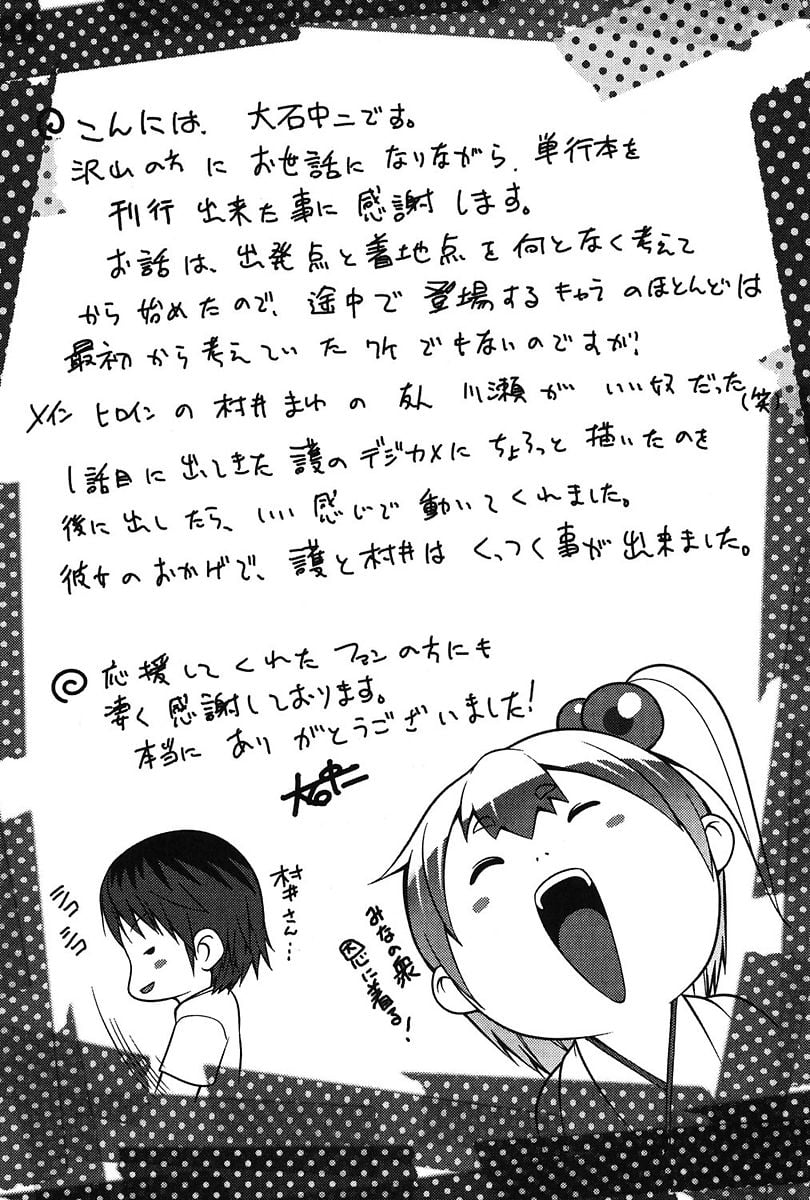 こんには、大石中二です。
沢山の方にお世話になりながら、単行本を
刊行出来た事に感謝します。
お話は、出発点と着地点を何となく考えて
から始めたので、途中で登場するキャラのほとんどは
最初から考えていたワケでもないのですが、
メインヒロインの村井まゆの友人川瀬がいい奴だった(笑)
1話目に出てきた護のデジカメにちょろっと描いたのを
後に出したら、いい感じで動いてくれました。
彼女のおかげで、護と村井はくっつく事が出来ました。
応援してくれたファンの方にも
凄く感謝しております。
本当にありがとうございました!
大石中二
村井さん…
ミシミシ
みなの衆
恩に着る!